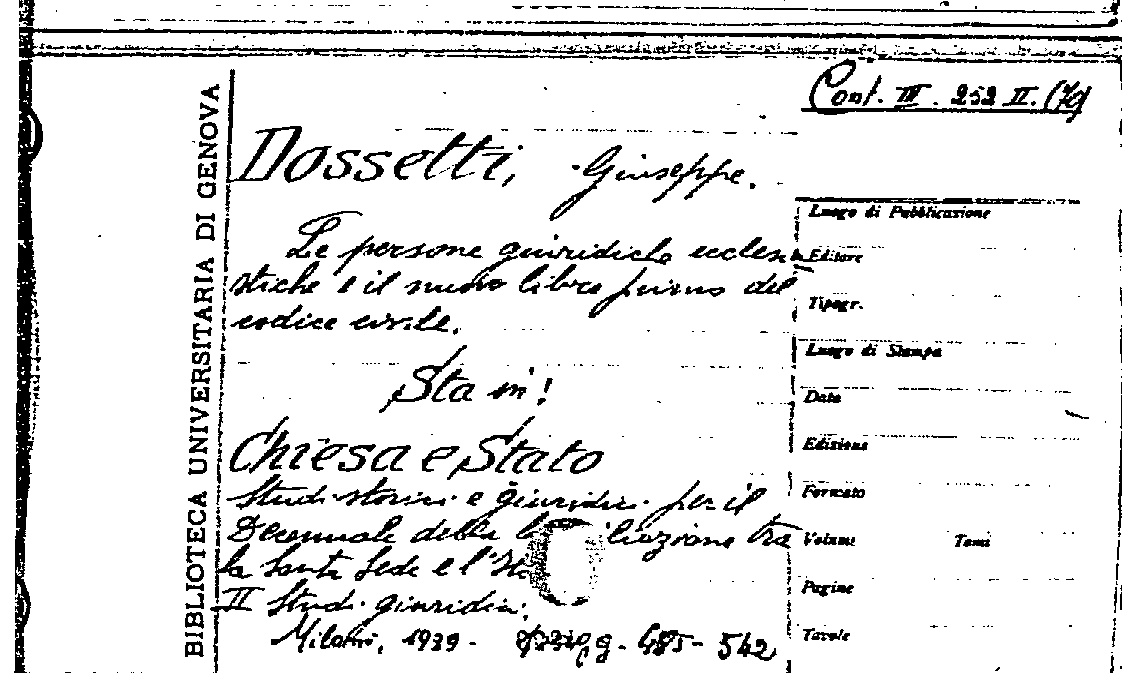 Cont. III. 252 II. (70)
BIBLIOTECA UNIVERSITARIA DI GENOVA
Dossetti, Giuseppe.
Le persone giuridiche ecclesia
stiche e il nuovo libro primo del
codice civile.
Sta in:
Chiesa e Stato
Studi storici e giuridici per il
Decennale della tra
la Santa Sede e l'
II Studi giuridici.
Milano, 1939 - pg. 485-542
Luogo di Pubblicazione
Editore
Tipogr.
Luogo di Stampa
Data
Edizione
Formato
Volumi Tomi
Pagine
Tavole